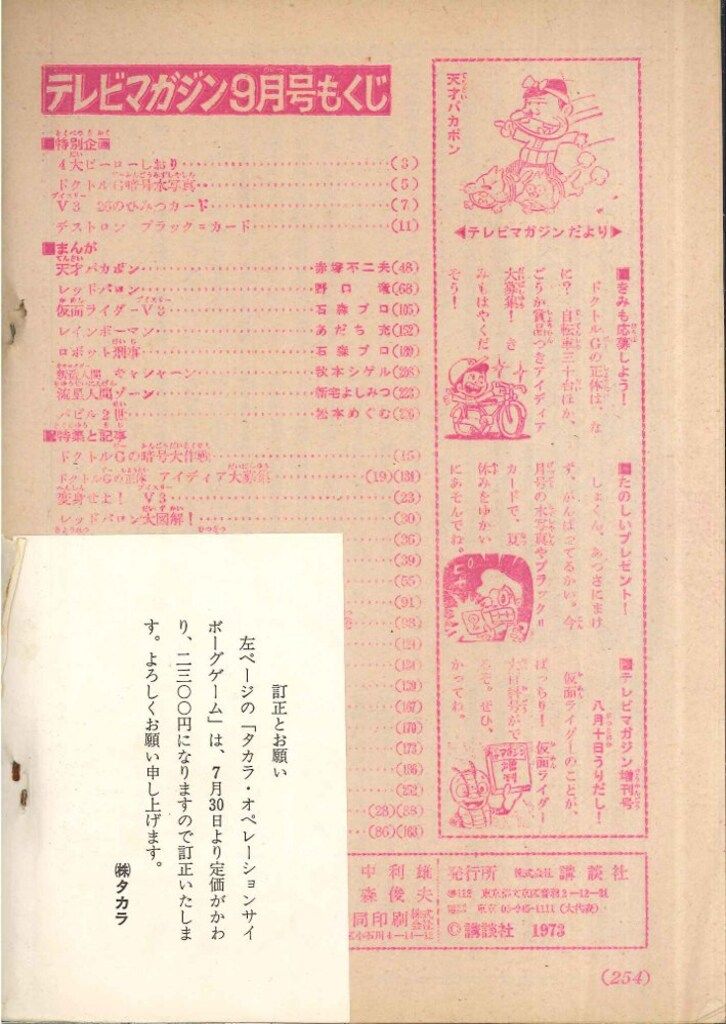 テレビマガジン9月号もくじ
■特別企画
4大ヒーローしおり(3)
ドクトルG暗号水写真(5)
V3 26のひみつカード(7)
デストロン ブラック=カード(11)
■まんが
天才バカボン 赤塚不二夫(48)
レッドバロン 野口竜(68)
仮面ライダーV3 石森プロ(105)
レインボーマン あだち充(152)
ロボット刑事 石森プロ
新造人間 キャシャーン 秋本シゲル
流星人間ゾーン 新宅よしみつ
バビル2世 松本めぐむ
■特集と記事
ドクトルGの暗号大作戦(15)
ドクトルGの正体 アイディア大募集(19)(131)
変身せよ! V3(23)
レッドバロン大図解!(30)
(36)
(39)
(55)
(91)
(167)
(170)
(173)
(252)
(28)(88)
(86)(163)
天才バカボン
◀テレビマガジンだより▶
■きみも応募しよう!
ドクトルGの正体は、な
に? 自転車三十台ほか、
ごうか賞品つきアイディア
大募集! き
みもはやくだ
そう!
■たのしいプレゼント!
しょくん、あつさにまけ
ず、がんばってるかい。今
月号の水写真やブラック=
カードで、夏
休みをゆかい
にあそんでね。
■テレビマガジン増刊号
八月十日うりだし!
仮面ライダーのことが、
ばっちり! 仮面ライダー
ぞ。ぜひ、
かってね。
訂正とお願い
左ページの「タカラ・オペレーションサイ
ボーグゲーム」は、7月30日より定価がかわ
り、二三〇〇円になりますので訂正いたしま
す。よろしくお願い申し上げます。
㈱タカラ
中利雄
森俊夫
同印刷株式会社
発行所 株式会社 講談社
東京都文京区音羽2-12-21
電話 東京03-945-1111(大代表)
©講談社 1973
(254)